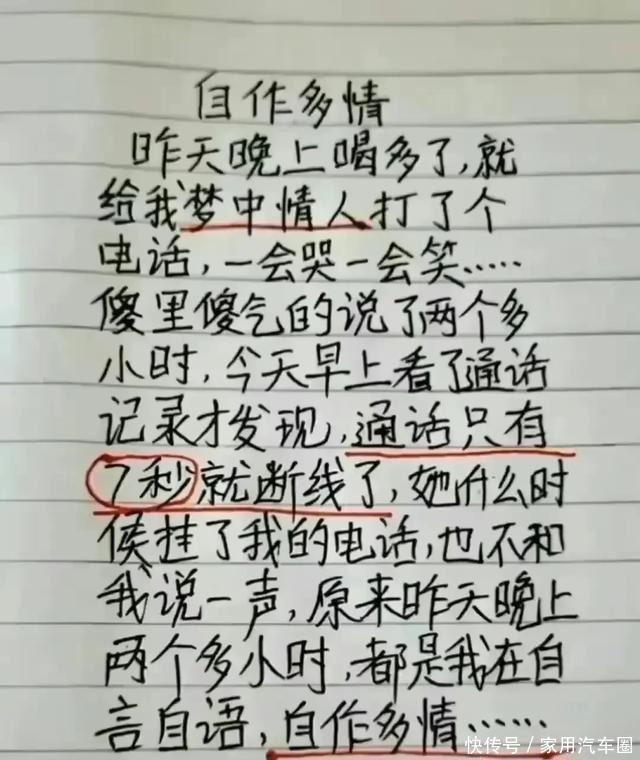 自作多情
昨天晚上喝多了,就
给我梦中情人打了个
电话,一会哭一会笑.....
傻里傻气的说了两个多
小时,今天早上看了通话
记录才发现,通话只有
7秒就断线了,她什么时
侯挂了我的电话,也不和
我说一声,原来昨天晚上
两个多小时,都是我在自
言自语,自作多情......
快传号/家用汽车圈